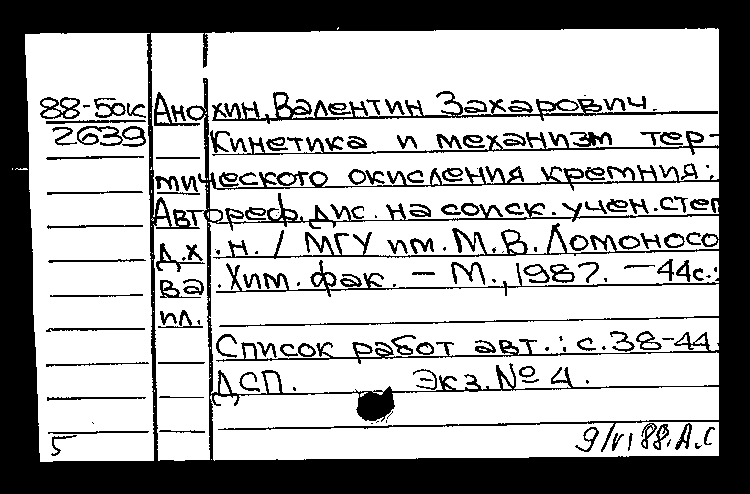 88-5окс Анохин, Валентин Захарович.
2639 Кинетика и механизм тер-
мического окисления кремния:
Автореф. дис. на соиск. учен. степ
д.х.н. / МГУ им. М.В. Ломоносо
ва. Хим. фак. – М., 1987. – 44с.:
ил.
Список работ авт.: с. 38-44.
ДСП. Экз. № 4.
5 9/VI 88. А.С